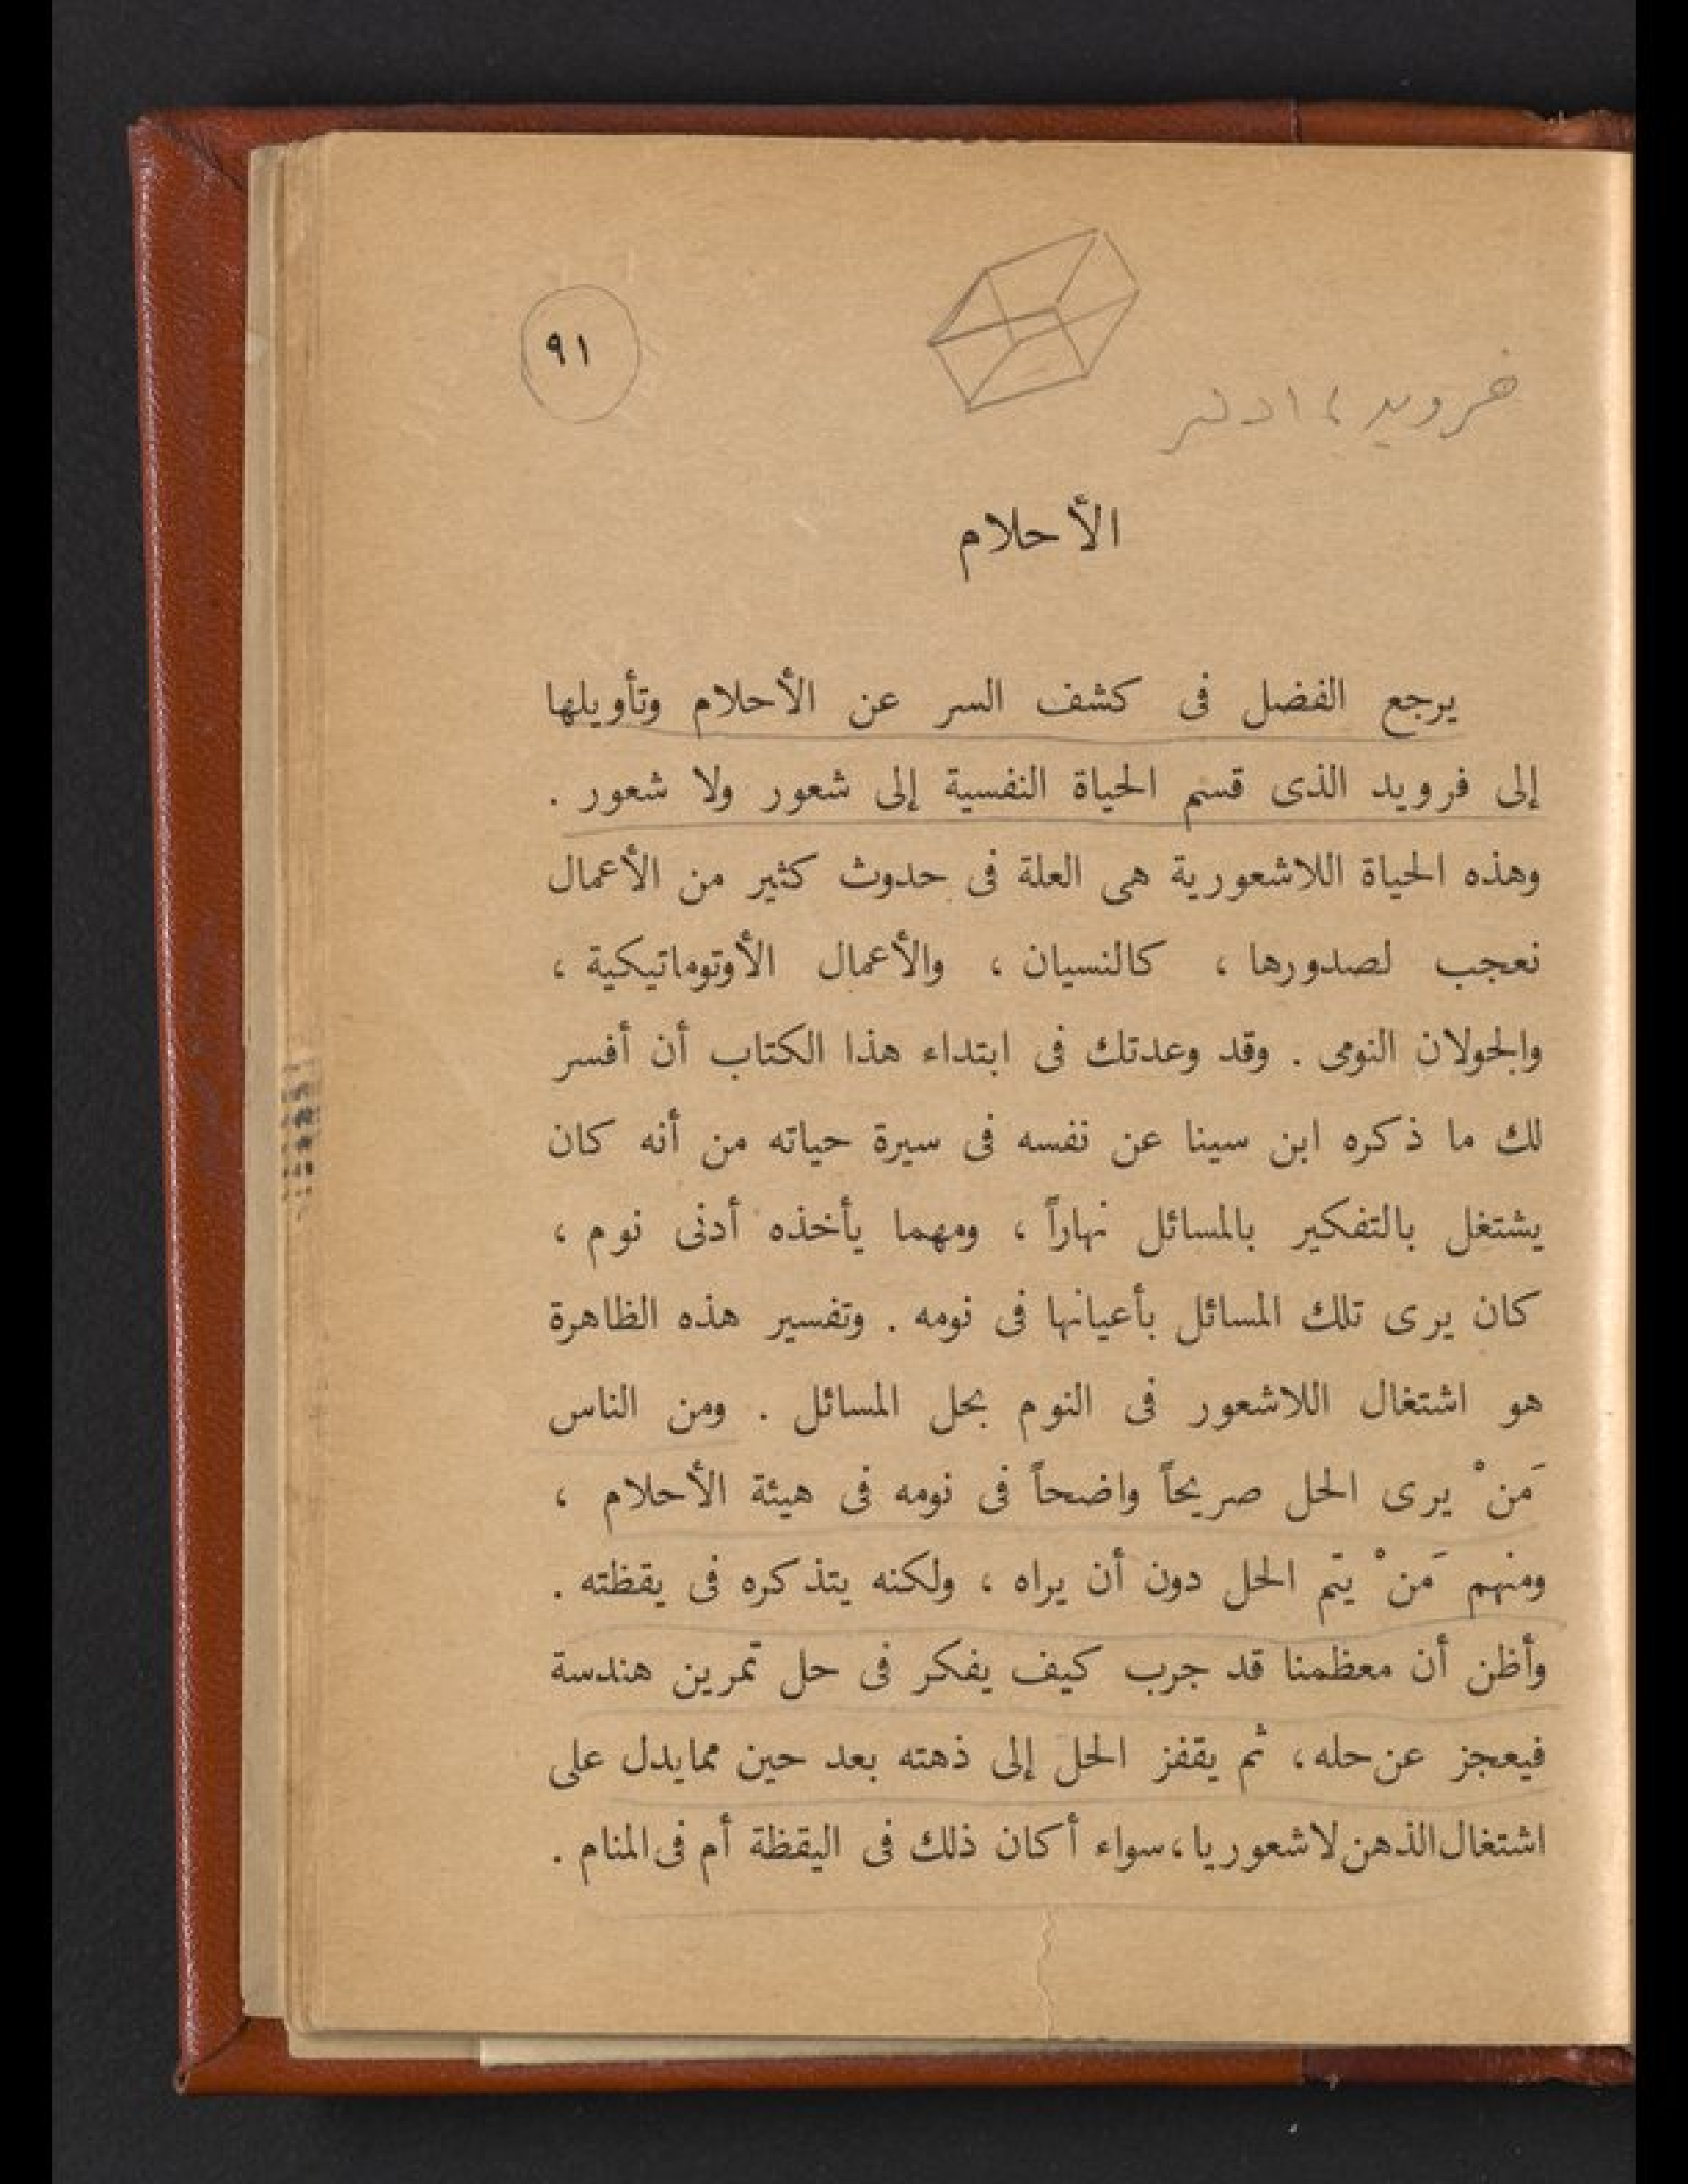 ٩١
فرويد، ادلر
الأحلام
يرجع الفضل فى كشف السر عن الأحلام وتأويلها
إلى فرويد الذى قسم الحياة النفسية إلى شعور ولا شعور .
وهذه الحياة اللاشعورية هى العلة فى حدوث كثير من الأعمال
نعجب لصدورها ، كالنسيان ، والأعمال الأوتوماتيكية ،
والجولان النومى . وقد وعدتك فى ابتداء هذا الكتاب أن أفسر
لك ما ذكره ابن سينا عن نفسه فى سيرة حياته من أنه كان
يشتغل بالتفكير بالمسائل نهاراً ، ومهما يأخذه أدنى نوم ،
كان يرى تلك المسائل بأعيانها فى نومه . وتفسير هذه الظاهرة
هو اشتغال اللاشعور فى النوم بحل المسائل . ومن الناس
مَنْ يرى الحل صريحاً واضحاً فى نومه فى هيئة الأحلام ،
ومنهم مَنْ يتم الحل دون أن يراه ، ولكنه يتذكره فى يقظته .
وأظن أن معظمنا قد جرب كيف يفكر فى حل تمرين هندسة
فيعجز عن حله، ثم يقفز الحل إلى ذهته بعد حين مما يدل على
اشتغال الذهن لاشعوريا، سواء أكان ذلك فى اليقظة أم فى المنام .